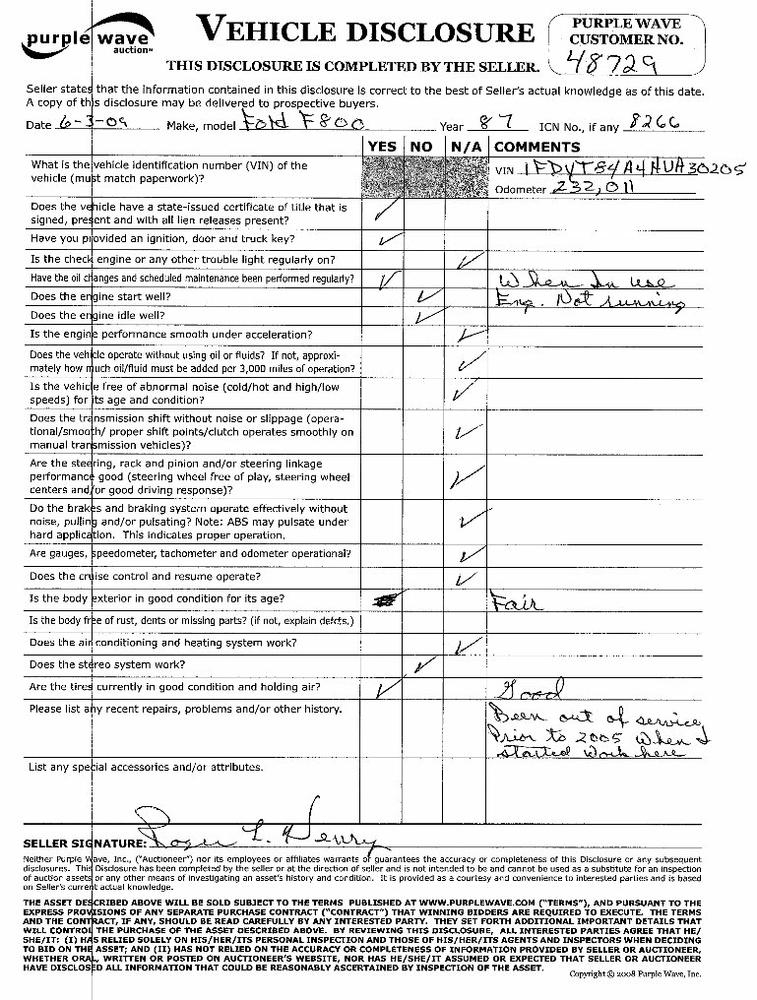 purple wave
auction™
VEHICLE DISCLOSURE
THIS DISCLOSURE IS COMPLETED BY THE SELLER.
PURPLE WAVE
CUSTOMER NO.
48729
Seller states that the information contained in this disclosure is correct to the best of Seller's actual knowledge as of this date.
A copy of this disclosure may be delivered to prospective buyers.
Date 6-3-09 Make, model Ford F800 Year 87 ICN No., if any 8266
YES NO N/A COMMENTS
What is the vehicle identification number (VIN) of the
vehicle (must match paperwork)?
VIN 1FDYT84A4HUA30205
Odometer 232,011
Does the vehicle have a state-issued certificate of title that is
signed, present and with all lien releases present?
Have you provided an ignition, door and truck key?
Is the check engine or any other trouble light regularly on?
Have the oil changes and scheduled maintenance been performed regularly? When In use
Does the engine start well? Eng. Not running
Does the engine idle well?
Is the engine performance smooth under acceleration?
Does the vehicle operate without using oil or fluids? If not, approxi-
mately how much oil/fluid must be added per 3,000 miles of operation?
Is the vehicle free of abnormal noise (cold/hot and high/low
speeds) for its age and condition?
Does the transmission shift without noise or slippage (opera-
tional/smooth/ proper shift points/clutch operates smoothly on
manual transmission vehicles)?
Are the steering, rack and pinion and/or steering linkage
performance good (steering wheel free of play, steering wheel
centers and/or good driving response)?
Do the brakes and braking system operate effectively without
noise, pulling and/or pulsating? Note: ABS may pulsate under
hard application. This indicates proper operation.
Are gauges, speedometer, tachometer and odometer operational?
Does the cruise control and resume operate?
Is the body exterior in good condition for its age? Fair
Is the body free of rust, dents or missing parts? (if not, explain defcts.)
Does the air conditioning and heating system work?
Does the stereo system work?
Are the tires currently in good condition and holding air? Good
Please list any recent repairs, problems and/or other history.
Been out of service
Prior to 2005 When I
started work here
List any special accessories and/or attributes.
SELLER SIGNATURE: Roger L. Henry
Neither Purple Wave, Inc., ("Auctioneer") nor its employees or affiliates warrants or guarantees the accuracy or completeness of this Disclosure or any subsequent
disclosures. This Disclosure has been completed by the seller or at the direction of seller and is not intended to be and cannot be used as a substitute for an inspection
of auction assets or any other means of investigating an asset's history and condition. It is provided as a courtesy and convenience to interested parties and is based
on Seller's current actual knowledge.
THE ASSET DESCRIBED ABOVE WILL BE SOLD SUBJECT TO THE TERMS PUBLISHED AT WWW.PURPLEWAVE.COM ("TERMS"), AND PURSUANT TO THE
EXPRESS PROVISIONS OF ANY SEPARATE PURCHASE CONTRACT ("CONTRACT") THAT WINNING BIDDERS ARE REQUIRED TO EXECUTE. THE TERMS
AND THE CONTRACT, IF ANY, SHOULD BE READ CAREFULLY BY ANY INTERESTED PARTY. THEY SET FORTH ADDITIONAL IMPORTANT DETAILS THAT
WILL CONTROL THE PURCHASE OF THE ASSET DESCRIBED ABOVE. BY REVIEWING THIS DISCLOSURE, ALL INTERESTED PARTIES AGREE THAT HE/
SHE/IT: (I) HAS RELIED SOLELY ON HIS/HER/ITS PERSONAL INSPECTION AND THOSE OF HIS/HER/ITS AGENTS AND INSPECTORS WHEN DECIDING
TO BID ON THE ASSET; AND (II) HAS NOT RELIED ON THE ACCURACY OR COMPLETENESS OF INFORMATION PROVIDED BY SELLER OR AUCTIONEER,
WHETHER ORAL, WRITTEN OR POSTED ON AUCTIONEER'S WEBSITE, NOR HAS HE/SHE/IT ASSUMED OR EXPECTED THAT SELLER OR AUCTIONEER
HAVE DISCLOSED ALL INFORMATION THAT COULD BE REASONABLY ASCERTAINED BY INSPECTION OF THE ASSET.
Copyright © 2008 Purple Wave, Inc.